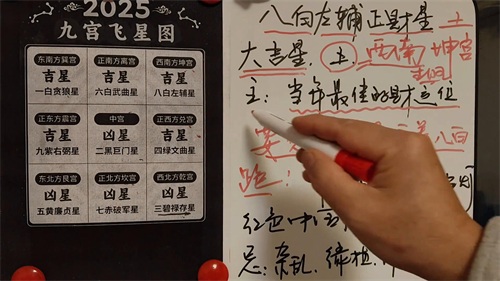 2025
九宫飞星图
东南方巽宫 正南方离宫 西南方坤宫
吉星 吉星 吉星
一白贪狼星 六白武曲星 八白左辅星
正东方震宫 中宫 正西方兑宫
吉星 凶星 吉星
九紫右弼星 二黑巨门星 四绿文曲星
东北方艮宫 正北方坎宫 西北方乾宫
凶星 凶星 凶星
五黄廉贞星 七赤破军星 三碧禄存星
八白左辅正财星 土
大吉星 土 西南 坤宫
主：当年最佳的财位
八白
红色
忌：杂乱、绿植、